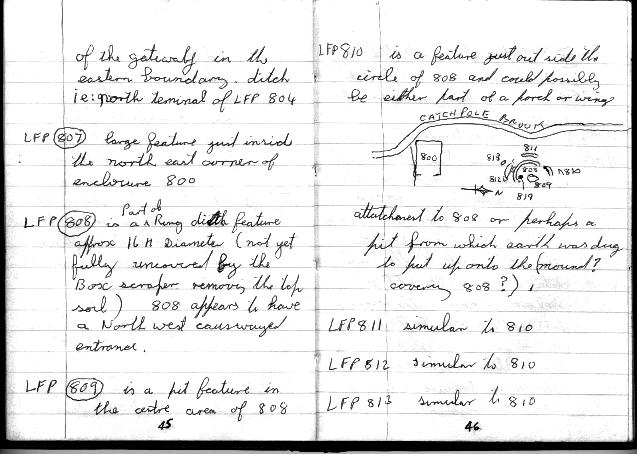 of the gateway in the
eastern boundary. ditch
ie: north teminal of LFP 804
LFP 807 large feature just inside
the north east corner of
enclosure 800
Part of
LFP 808 is a Ring ditch feature
approx 16 M Diameter (not yet
fully uncovered by the
Box scraper removing the top
soil) 808 appears to have
a North west causwayed
entrance.
LFP 809 is a pit feature in
the centre area of 808
45
LFP 810 is a feature just out side the
circle of 808 and could possibly
be either part of a porch or wings
CATCHPOLE BROOK
800
811
813
808
810
812
809
N
819
attatchment to 808 or perhaps a
pit from which earth was dug
to put up onto the (mound?
covering 808?).
LFP 811 simular to 810
LFP 812 simular to 810
LFP 813 simular to 810
46